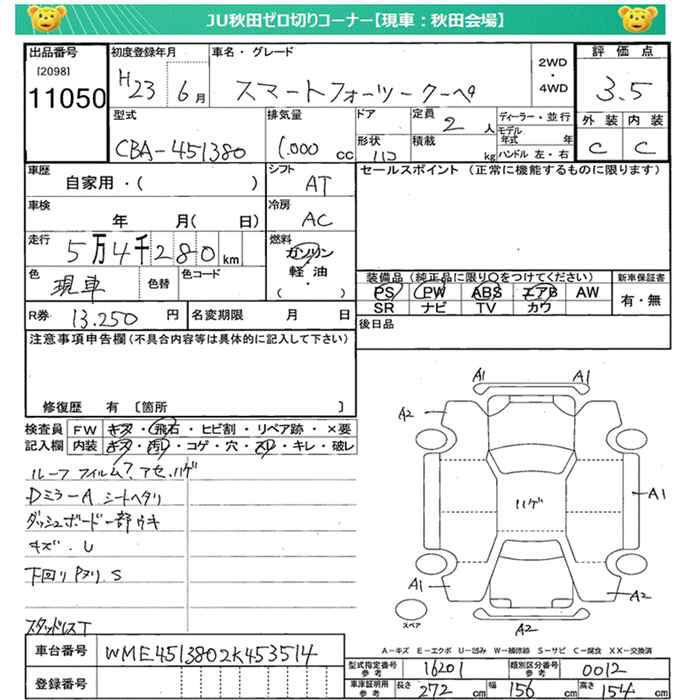 JU秋田ゼロ切りコーナー【現車：秋田会場】
出品番号
[2098]
11050
初度登録年月
H23 6月
車名・グレード
スマートフォーツークーペ
2WD
・
4WD
評価点
3.5
外装 内装
C C
型式
CBA-451380
排気量
1.000 cc
ドア
形状
定員
2 人
積載
kg
ディーラー・並行
モデル年式 年
ハンドル 左・右
車歴
自家用・( )
シフト
AT
セールスポイント (正常に機能するものに限ります)
車検
年 月( 日)
冷房
AC
走行
5万4千280km
燃料
ガソリン
軽油
( ・ )
色
現車
色替
色コード
装備品 (純正品に限り○をつけてください)
PS PW ABS エアB AW
SR ナビ TV カワ
新車保証書
有・無
R券 13.250 円
名変期限 月 日
後日品
注意事項申告欄(不具合内容等は具体的に記入して下さい)
修復歴 有 [箇所 ]
検査員記入欄
FW キズ・飛石・ヒビ割・リペア跡・×要
内装 キズ・汚れ・コゲ・穴・スレ・キレ・破レ
ルーフ フィルム? アセ、ハゲ
Dミラー A シートヘタリ
ダッシュボード一部ウキ
キズ.U
下回り サタリ.S
スタッドレスT
A1 A1
A2
ハゲ
A1
A1
A2
A2
スペア
A-キズ E-エクボ U-凹み W-補修跡 S-サビ C-腐食 XX-交換済
車台番号
WME4513802K453514
登録番号
型式指定番号
参考
16201
類別区分番号
参考
0012
車庫証明用
参考
長さ 272 cm
幅 156 cm
高さ 154 cm